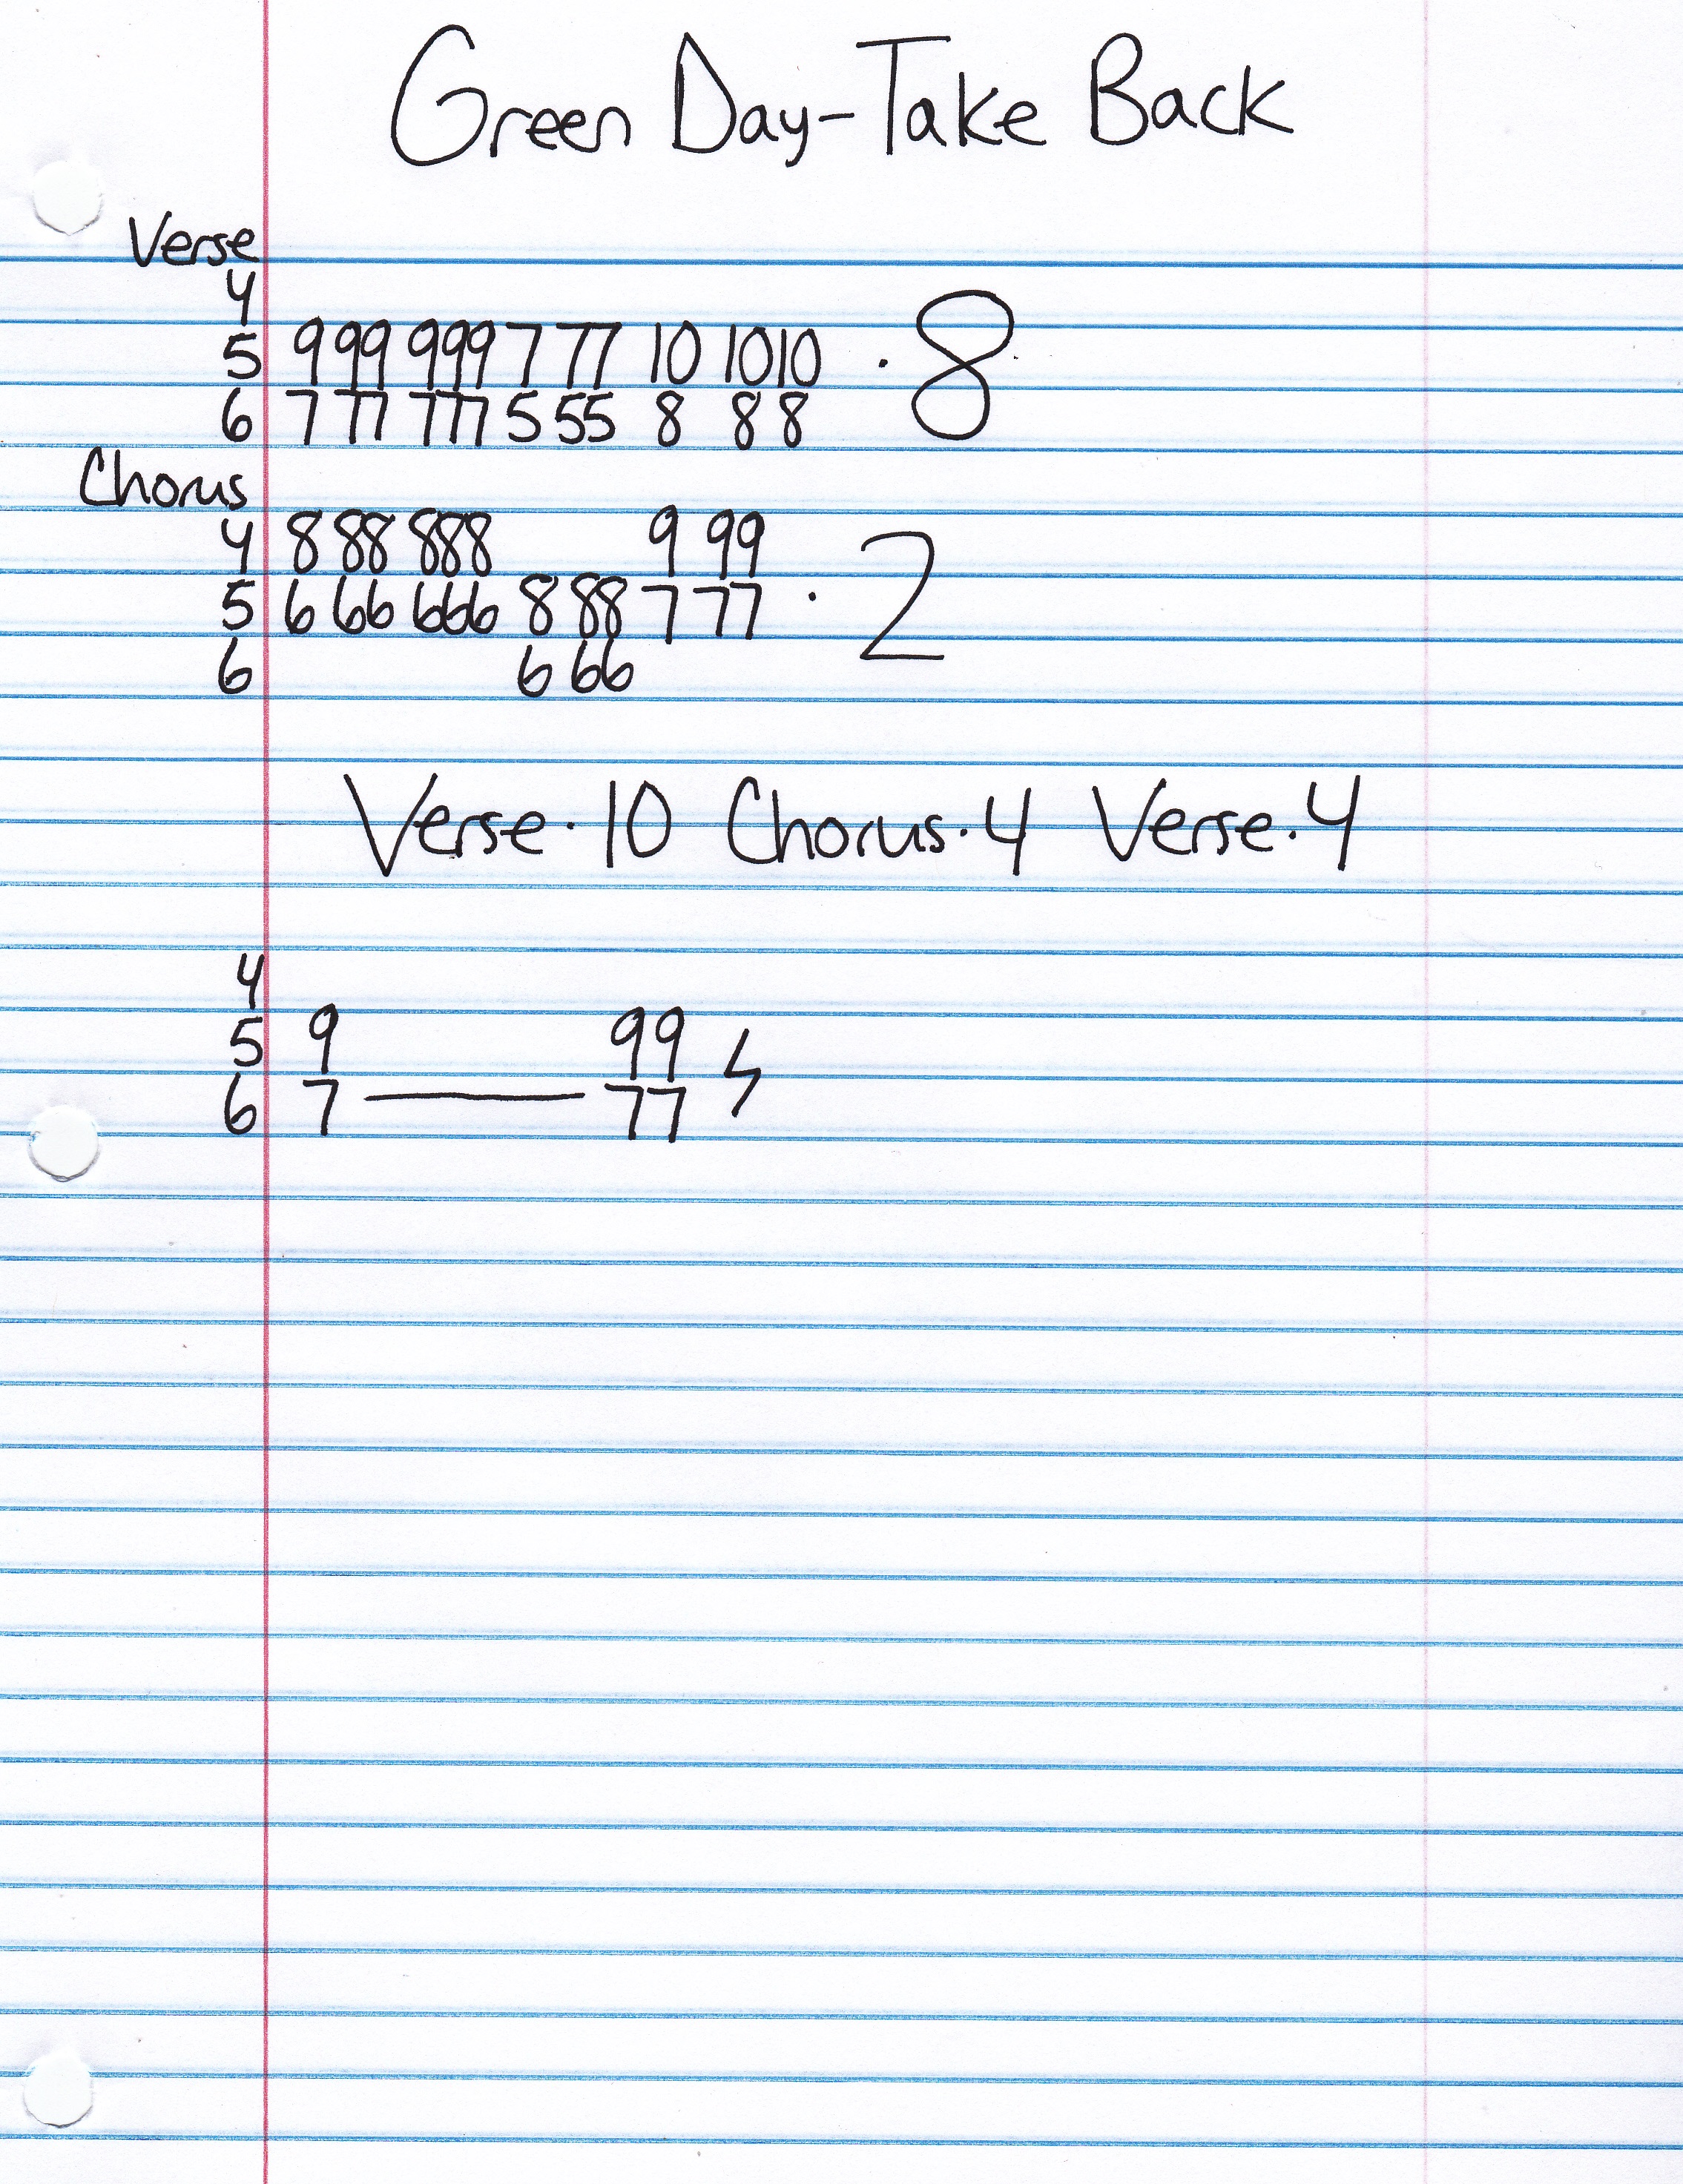 Green Day-Take Back
Verse
4
5 9 99 999 7 77 10 10 10 · 8
6 7 77 777 5 55 8 8 8
Chorus
4 8 88 888 9 99
5 6 66 666 8 88 7 77 · 2
6 6 66
Verse·10 Chorus·4 Verse·4
4
5 9 99
6 7 — 77